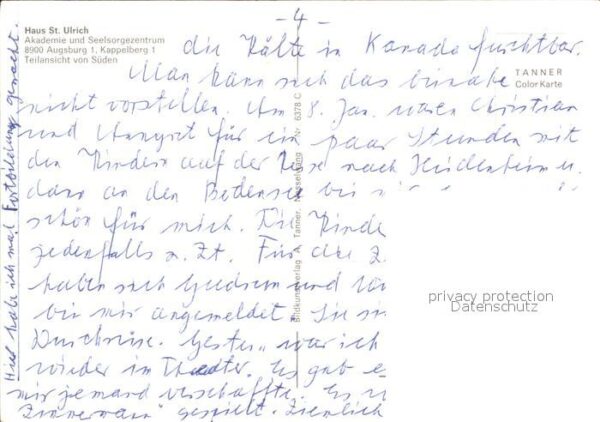 - 4 -
Haus St. Ulrich
Akademie und Seelsorgezentrum
8900 Augsburg 1, Kappelberg 1
Teilansicht von Süden
TANNER
Color Karte
die Kälte in Kanada furchtbar.
Man kann sich das beinahe
nicht vorstellen. Am 8. Jan. waren Christian
und Anngret für ein paar Stunden mit
den Kindern auf der Reise nach Heidenheim u.
dann an den Bodensee bei
schön für mich. Die Kinde
jedenfalls z. Zt. Für das
haben sich Gudrun und
bei mir angemeldet. Sie si
Durchreise. Gestern war ich
wieder im Theater. Es gab
mir jemand verschaffte. Es
Zimmermann" gespielt. Ziemlich
Hier habe ich mal Fortsetzung gemacht.
Bildkunstverlag A. Tanner, Nesselwang Nr. 6378 C
privacy protection
Datenschutz